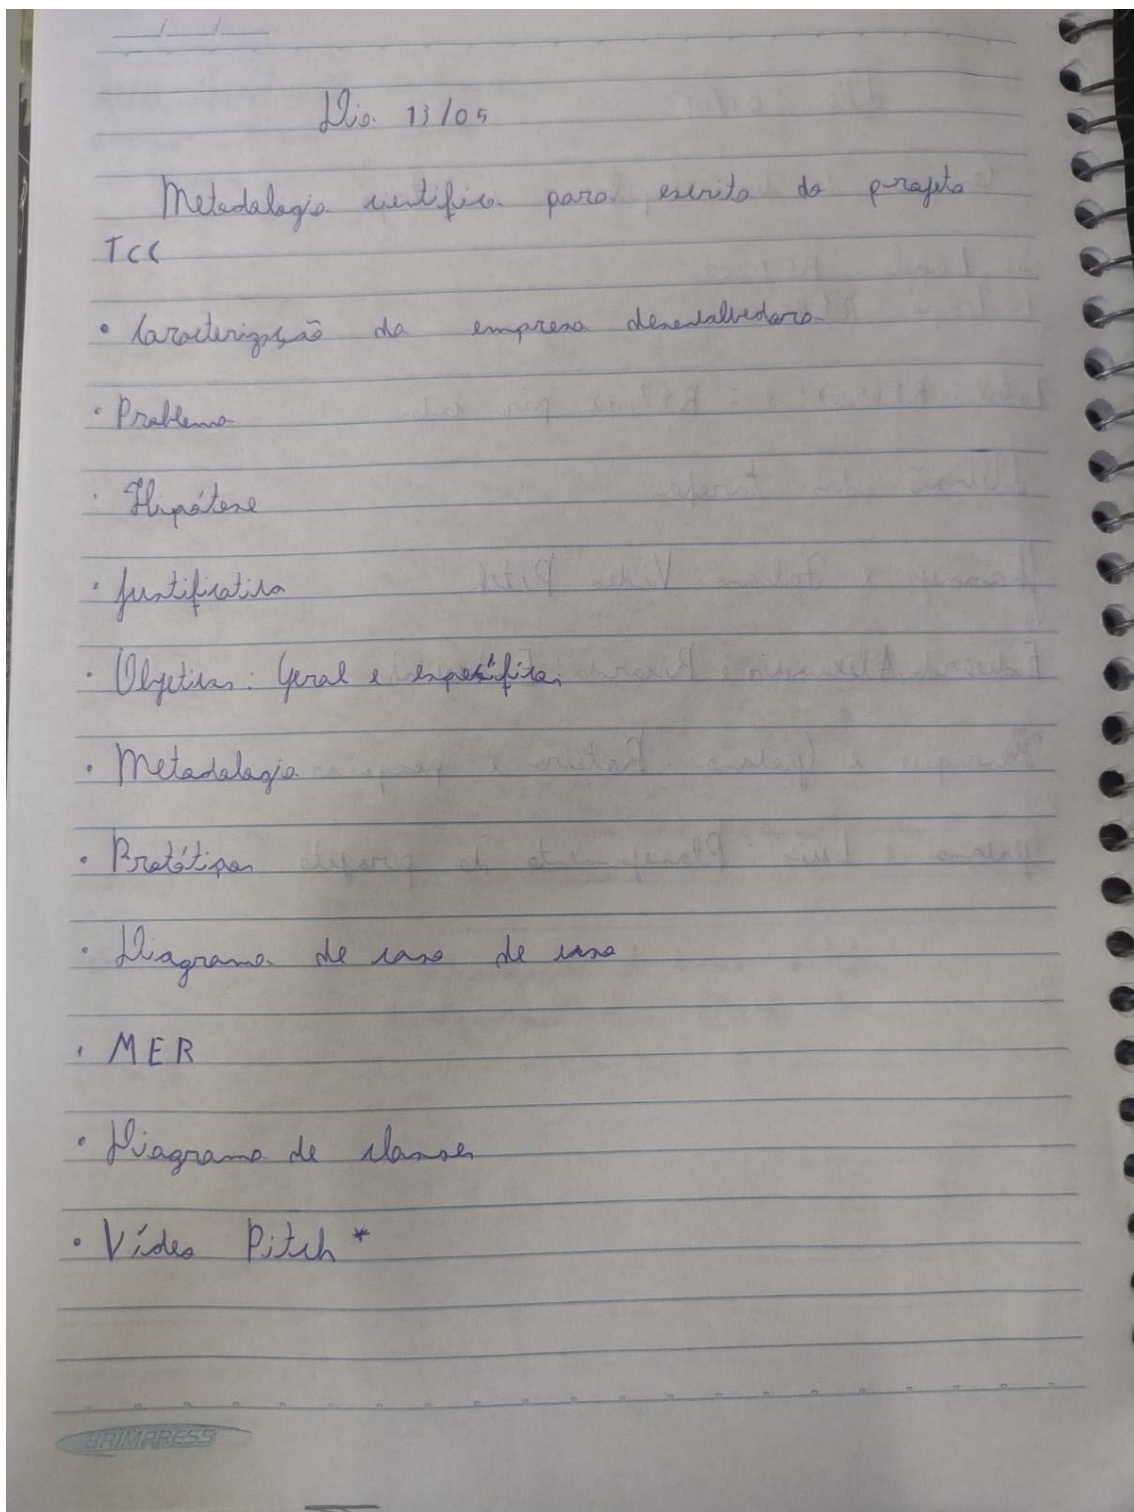 Dia 13/05
Metodologia científica para escrita do projeto
TCC
• Caracterização da empresa desenvolvedora
• Problema
• Hipótese
• Justificativa
• Objetivos: Geral e específicos
• Metodologia
• Protótipos
• Diagrama de caso de uso
• MER
• Diagrama de classes
• Vídeo Pitch *
GRIMPRESS